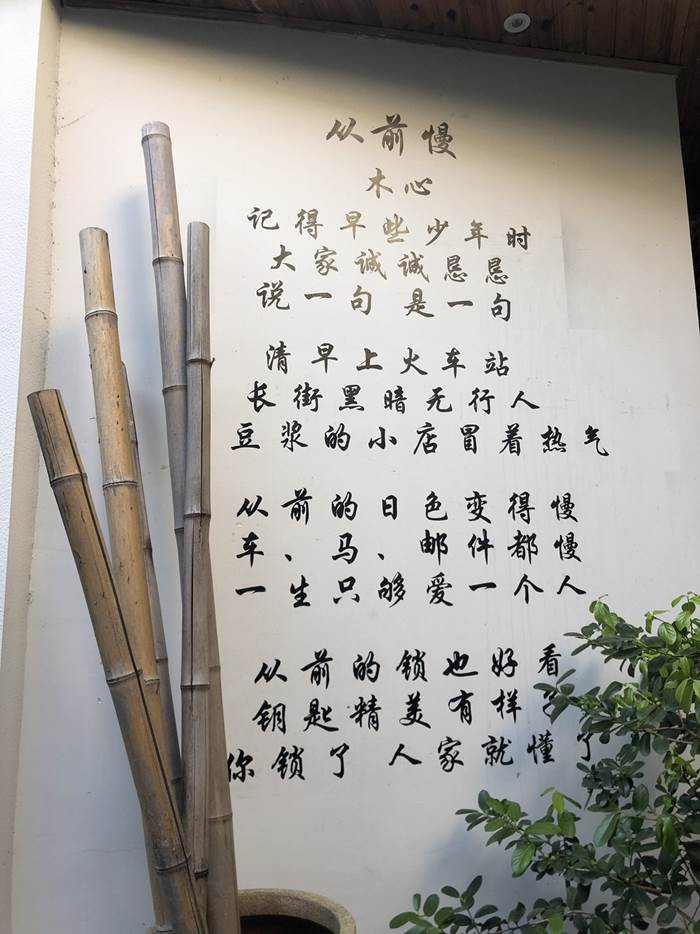 从前慢
木心
记得早些少年时
大家诚诚恳恳
说一句 是一句
清早上火车站
长街黑暗无行人
豆浆的小店冒着热气
从前的日色变得慢
车、马、邮件都慢
一生只够爱一个人
从前的锁也好看
钥匙精美有样
你锁了 人家就懂了